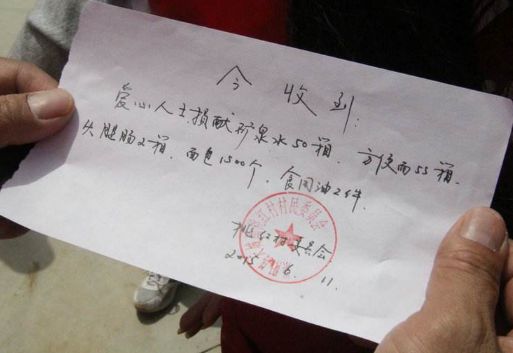 今收到:
爱心人士损献矿泉水50箱、方便面55箱、
火腿肠2箱、面包1500个、食用油2件.
桃红村委员会
2015.6.11.
红村村民委员会